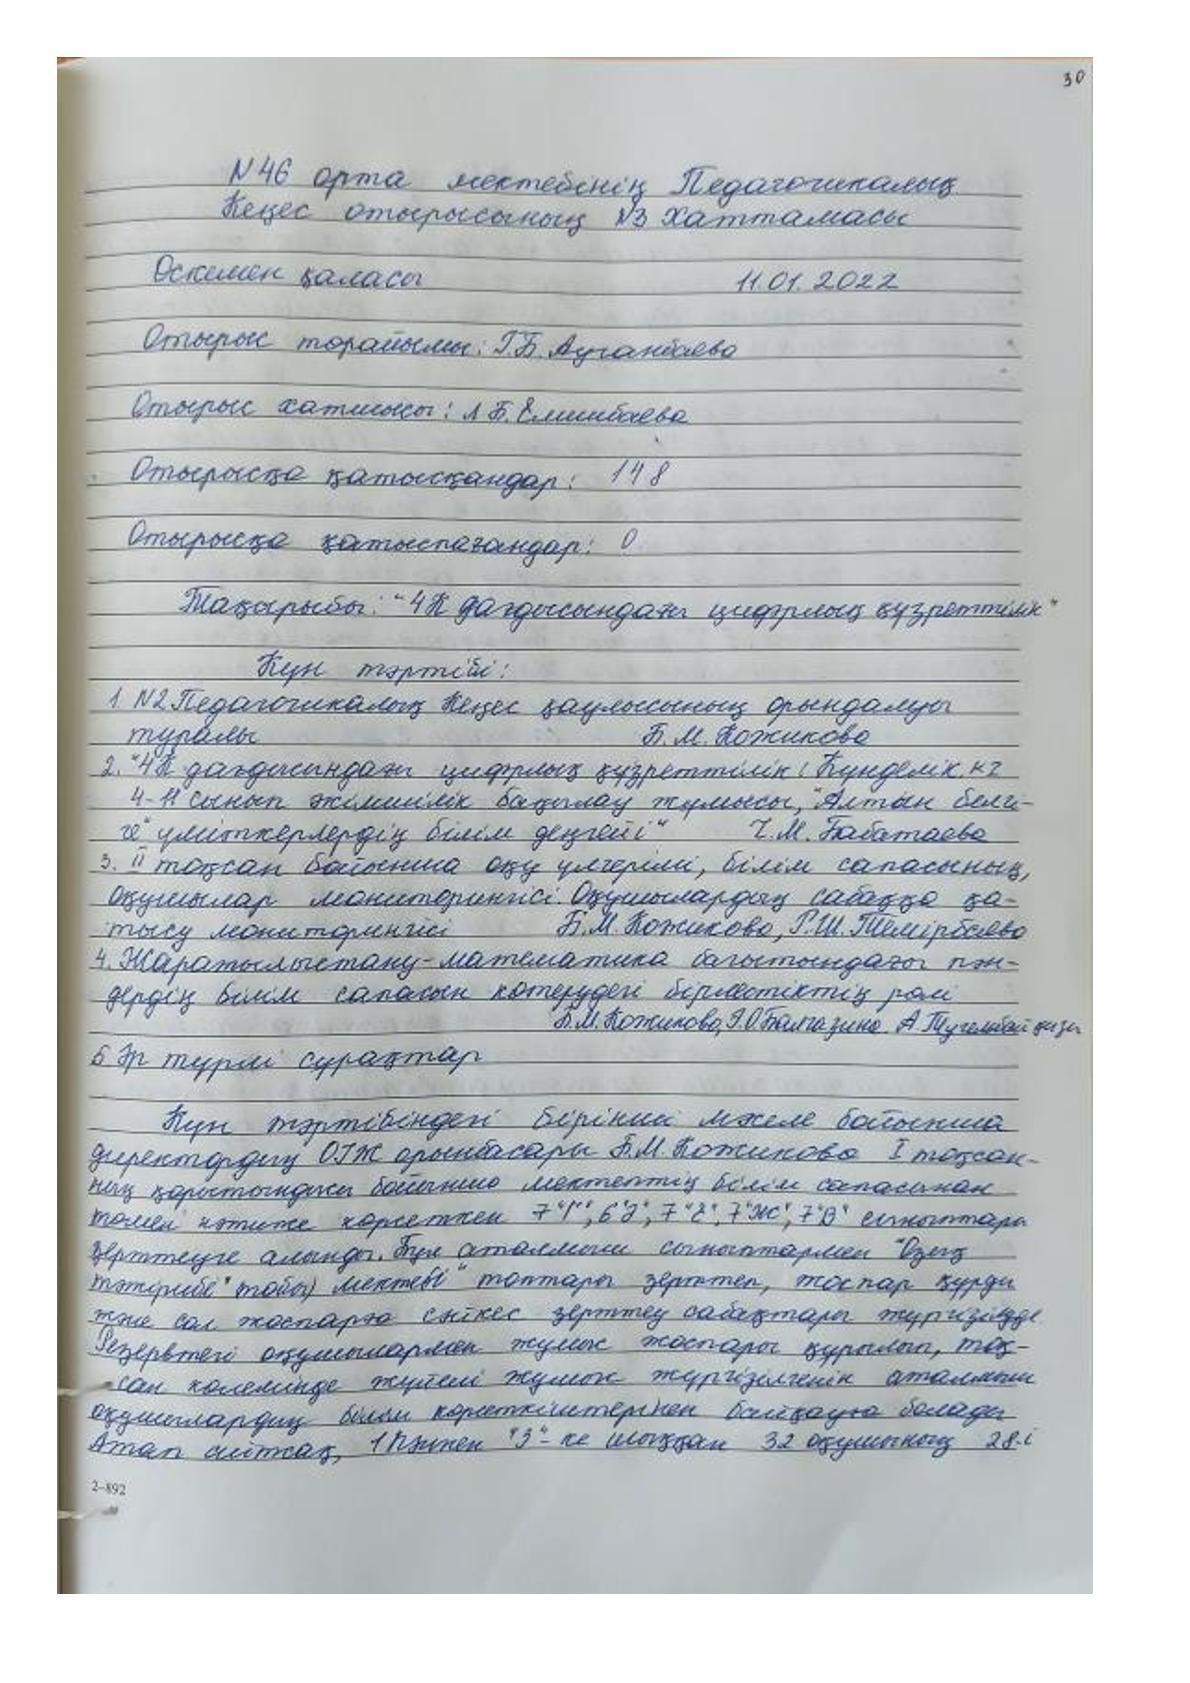 30
N46 орта мектебінің Педагогикалық
Кеңес отырысының N3 Хаттамасы
Өскемен қаласы 11.01.2022
Отырыс төрайымы: Г.Б. Ауганбаева
Отырыс хатшысы: Л.Б. Елишбаева
Отырысқа қатысқандар: 148
Отырысқа қатыспағандар: 0
Тақырыбы: "4К дағдысындағы цифрлық құзреттілік"
Күн тәртібі:
1. N2 Педагогикалық Кеңес қаулысының орындалуы
туралы Б.М. Кожикова
2. "4К дағдысындағы цифрлық құзреттілік: Күнделік.кz
4-11 сынып әкімшілік бақылау жұмысы, "Алтын белгі-
ге" үміткерлердің білім деңгейі" Ч.М. Бабатаева
3. II тоқсан бойынша оқу үлгерімі, білім сапасының,
оқушылар мониторингісі. Оқушылардың сабаққа қа-
тысу мониторингісі Б.М. Кожикова, Г.Ш. Темірбаева
4. Жаратылыстану-математика бағытындағы пән-
дердің білім сапасын көтерудегі бірлестіктің рөлі
Б.М. Кожикова, Балгазина А. Тугелбайқызы
5 Әр түрлі сұрақтар
Күн тәртібіндегі бірінші мәселе бойынша
директордың ОІЖ орынбасары Б.М. Кожикова I тоқсан-
ның қорытындысы бойынша мектептің білім сапасынан
төмен нәтиже көрсеткен 7"Г", 6"Ә", 7"Е", 7"Ж", 7"В" сыныптары
зерттеуге алынды. Бұл аталмыш сыныптармен "Озық
тәжірибе" тобы) мектебі" топтары зерттеп, жоспар құрды
және сол жоспарға сәйкес зерттеу сабақтары жүргізілуде
Резервтегі оқушылармен жұмыс жоспары құрылып, тоқ-
сан көлемінде жүйелі жұмыс жүргізілгенін аталмыш
оқушылардың білім көрсеткіштерінен байқауға болады
Атап айтсақ, 1 пәннен "3"-ке шыққан 32 оқушының 28-і
2-892